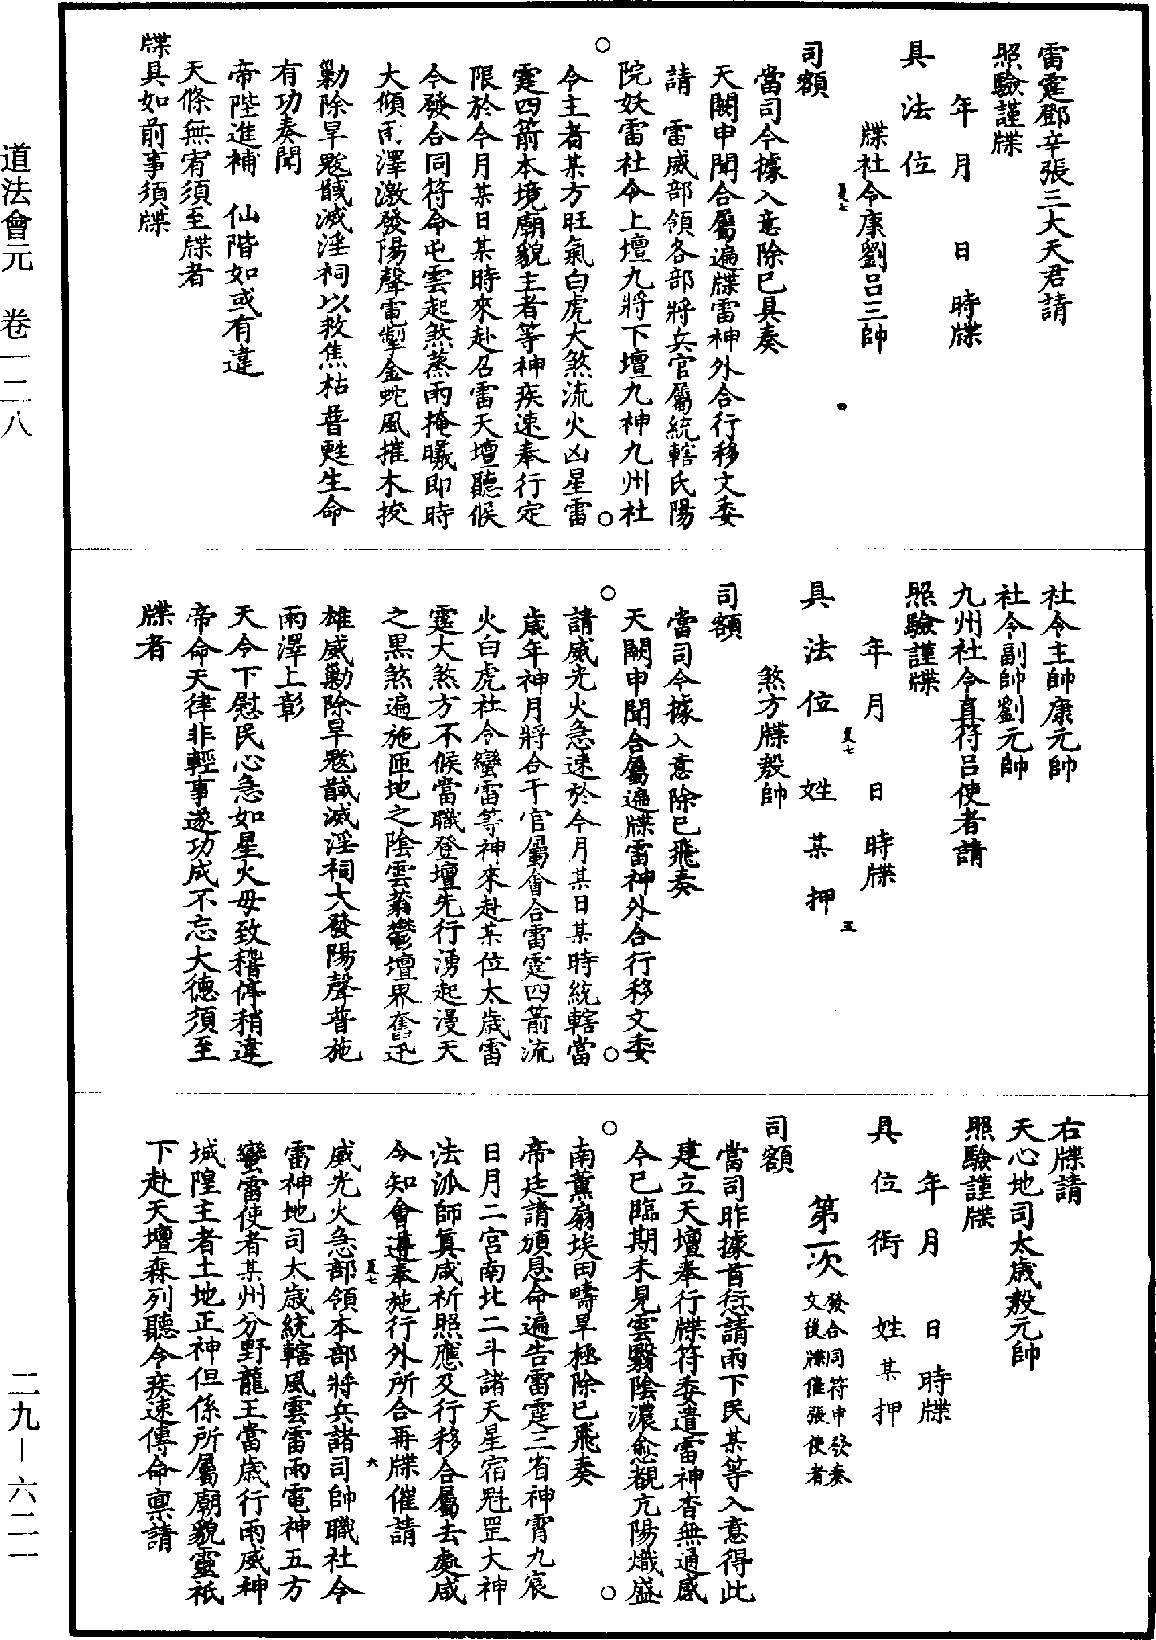 雷霆鄧辛張三大天君請
照驗謹牒
年月　日　時牒
具法位
牒社令康劉呂三帥
司額
當司今據入意除已具奏
天闕申聞合屬遍牒雷神外合行移文委
請　雷威部領各部將兵官屬統轄氏陽
院妖雷社令上壇九將下壇九神九州社
令主者某方旺氣白虎大煞流火凶星雷
霆四箭本境廟貌主者等神疾速奉行定
限於今月某日某時來赴召雷天壇聽候
令發合同符命屯雲起煞蒸雨掩曦即時
大傾雨澤激發陽聲電掣金蛇風摧木拔
勦除旱魃馘滅淫祠以救焦枯普甦生命
有功奏聞
帝陛進補　仙階如或有違
天條無宥須至牒者
牒具如前事須牒
社令主帥康元帥
社令副帥劉元帥
九州社令真符呂使者請
照驗謹牒
年月　日　時牒
具法位　姓某押
煞方牒殷帥
司額
當司今據入意除已飛奏
天闕申聞合屬遍牒雷神外合行移文委
請威光火急速於今月某日某時統轄當
歲年神月將合干官屬會合雷霆四箭流
火白虎社令蠻雷等神來赴某位太歲雷
霆大煞方不候當職登壇先行湧起漫天
之黑煞遍施匝地之陰雲蓊鬱壇界奮迅
雄威勦除旱魃馘滅淫祠大發陽聲普施
雨澤上彰
天令下慰民心急如星火毋致稽停稍違
帝命天律非輕事遂功成不忘大德須至
牒者
右牒請
天心地司太歲殷元帥
照驗謹牒
年月　日　時牒
具位銜　姓某押
第一次
發合同符申發奏
文後牒催張使者
司額
當司昨據首愆請雨下民某等入意得此
建立天壇奉行牒符委遣雷神杳無通感
今已臨期未見雲翳陰濃愈覩亢陽熾盛
南薰扇埃田疇旱極除已飛奏
帝廷請頒恩命遍告雷霆三省神霄九宸
日月二宮南北二斗諸天星宿魁罡大神
法派師真咸祈照應及行移合屬去處咸
令知會遵奉施行外所合再牒催請
威光火急部領本部將兵諸司帥職社令
雷神地司太歲統轄風雲雷雨電神五方
蠻雷使者某州分野龍王當歲行雨威神
城隍主者土地正神但係所屬廟貌靈祇
下赴天壇森列聽令疾速傳命稟請
道法會元　卷一二八
二九－六二一